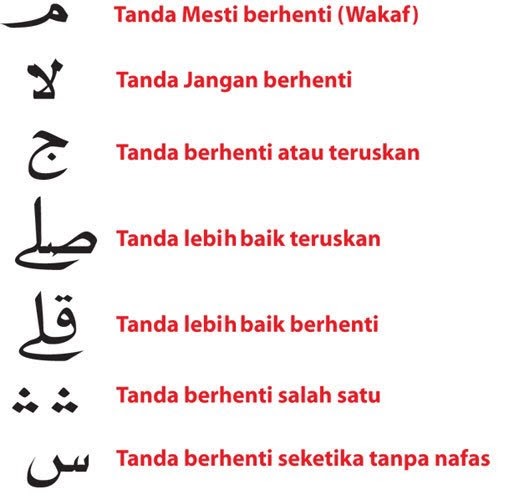 م Tanda Mesti berhenti (Wakaf)
لا Tanda Jangan berhenti
ج Tanda berhenti atau teruskan
صلے Tanda lebih baik teruskan
قلے Tanda lebih baik berhenti
ۛ ۛ Tanda berhenti salah satu
س Tanda berhenti seketika tanpa nafas